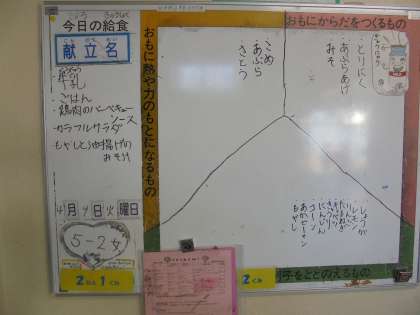 今日の給食
献立名
こんだてめい
・ごはん
・鶏肉のバーベキュー
ソース
・カラフルサラダ
・もやしと油揚げの
おみそ汁
4月9日火曜日
5-2女
2ねん1くみ
おもに熱や力のもとになるもの
・こめ
・あぶら
・さとう
おもにからだをつくるもの
・とりにく
・あぶらあげ
・みそ
・しょうが
・レモン
・たまねぎ
・キャベツ
・きゅうり
・にんじん
・コーン
・あかピーマン
・もやし
2くみ
子をととのえるもの